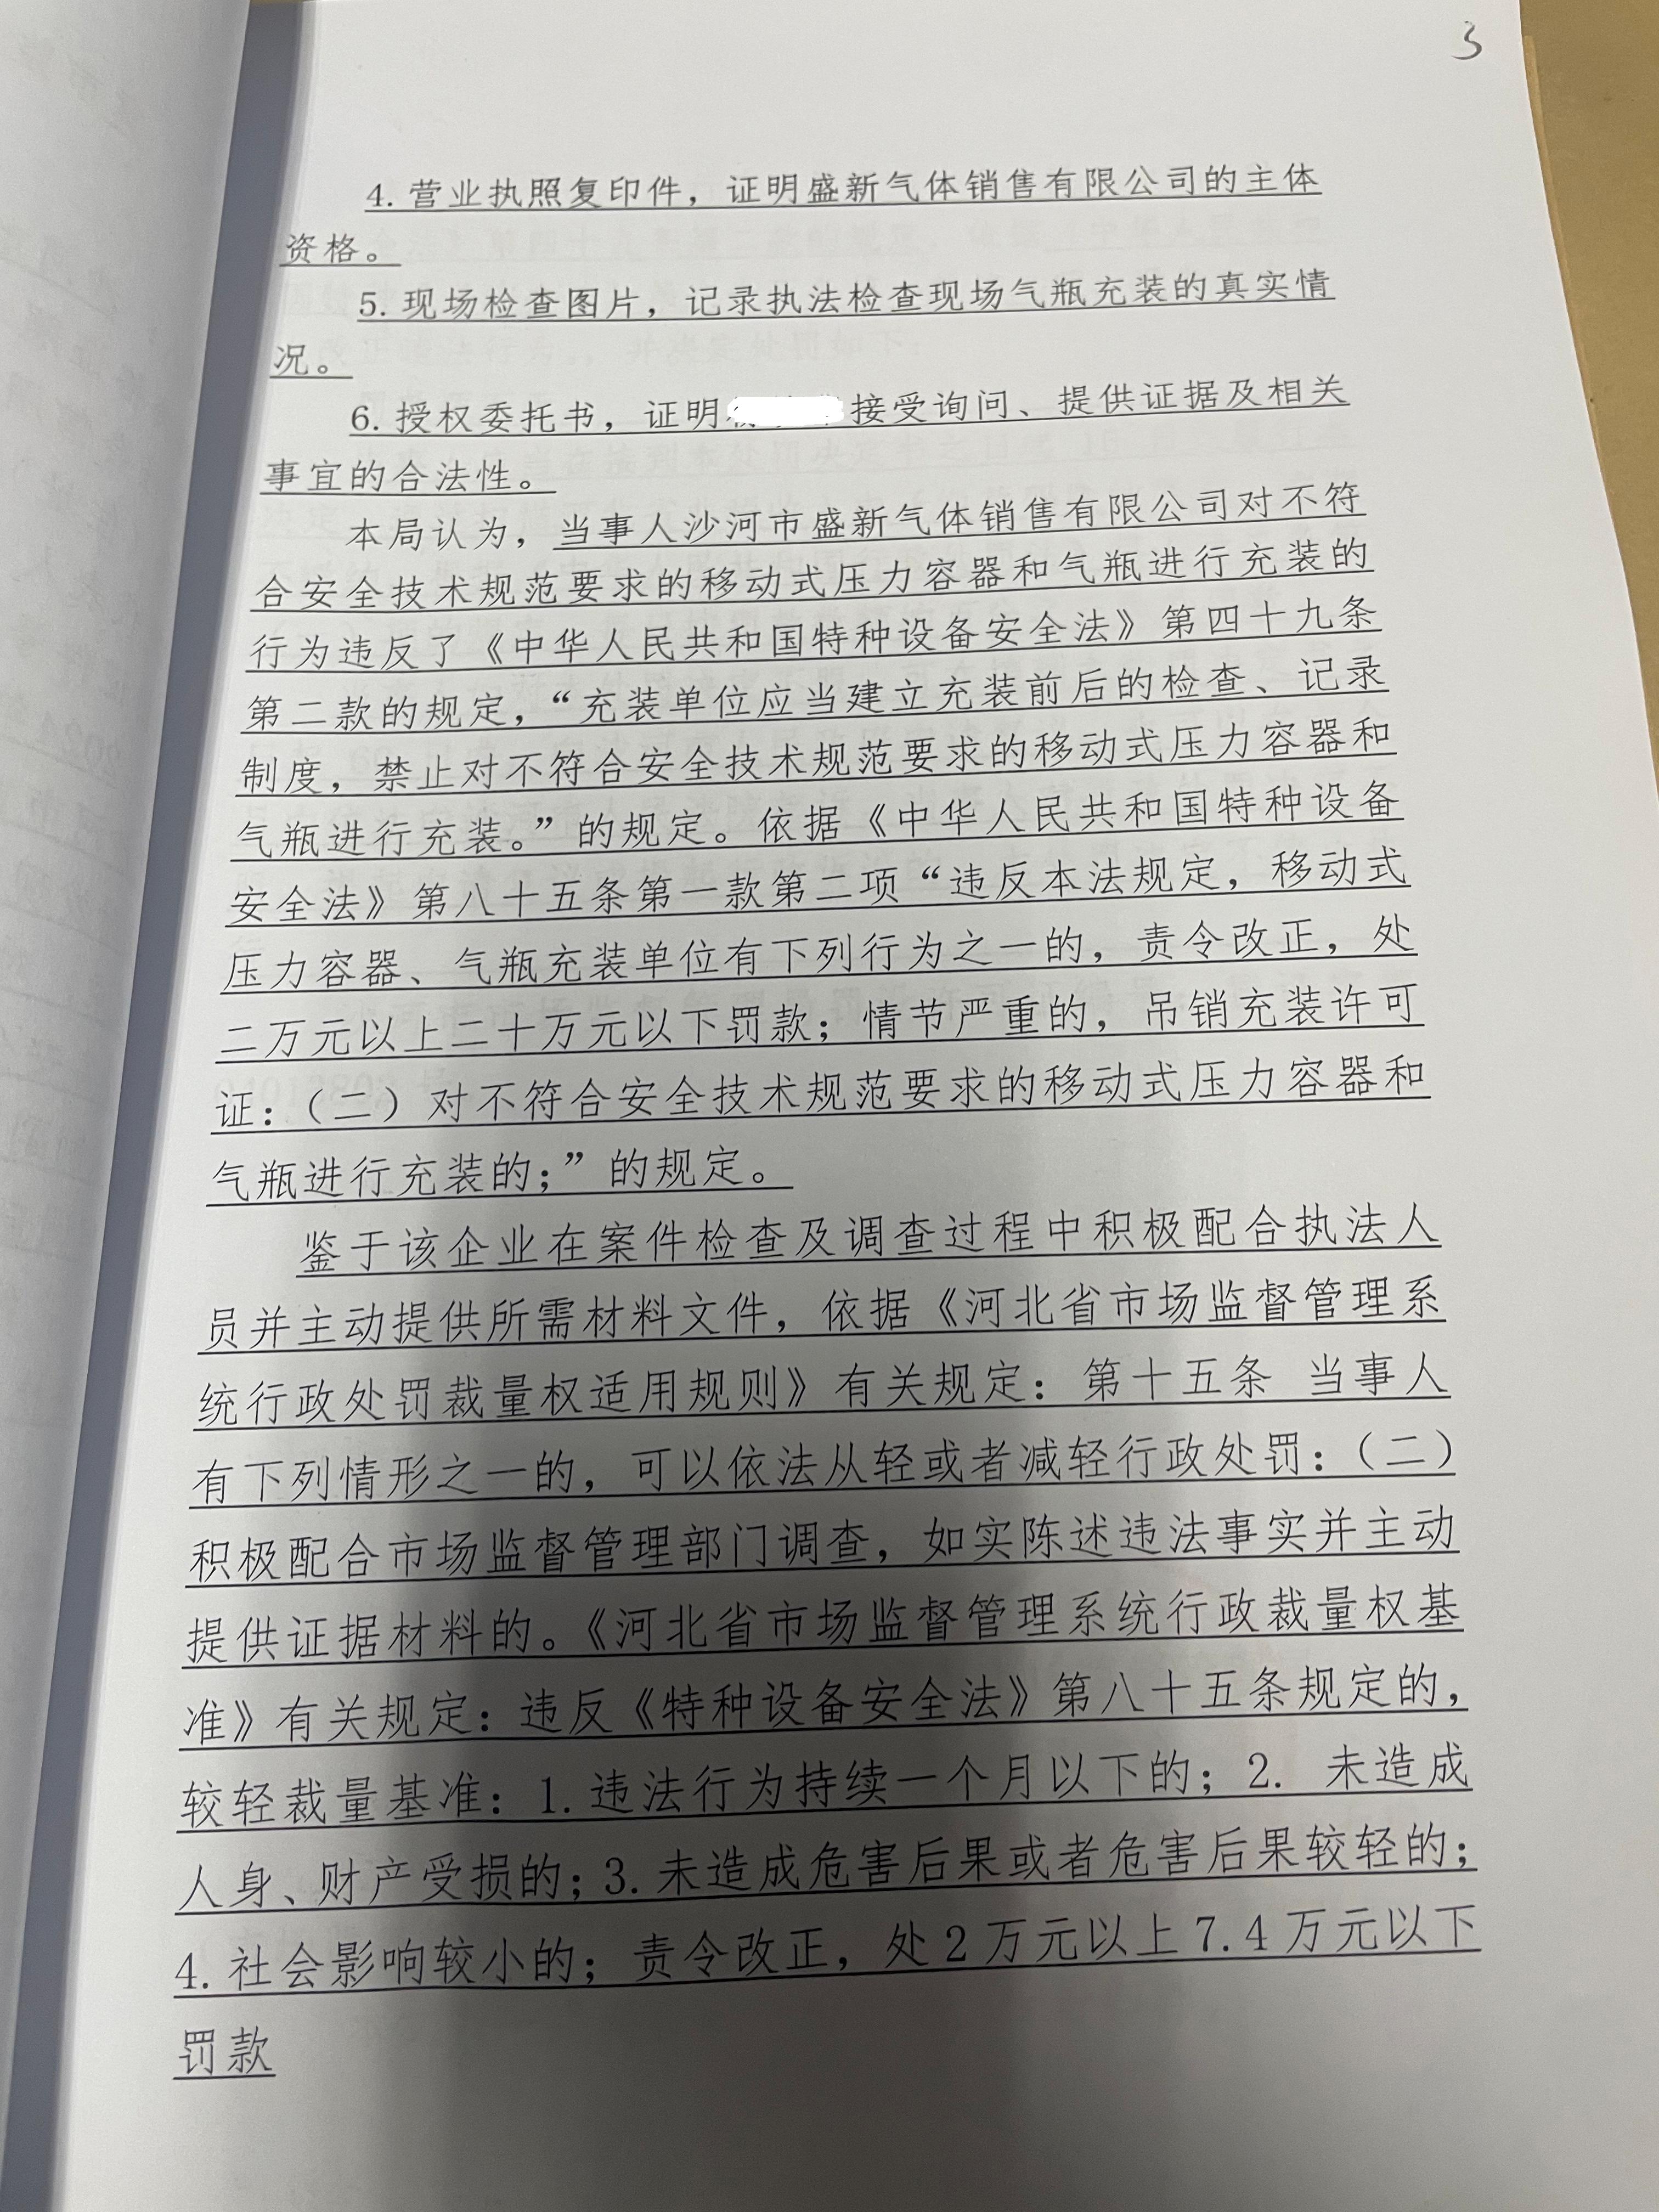 3
4. 营业执照复印件，证明盛新气体销售有限公司的主体
资格。
5. 现场检查图片，记录执法检查现场气瓶充装的真实情
况。
6. 授权委托书，证明 接受询问、提供证据及相关
事宜的合法性。
本局认为，当事人沙河市盛新气体销售有限公司对不符
合安全技术规范要求的移动式压力容器和气瓶进行充装的
行为违反了《中华人民共和国特种设备安全法》第四十九条
第二款的规定，“充装单位应当建立充装前后的检查、记录
制度，禁止对不符合安全技术规范要求的移动式压力容器和
气瓶进行充装。”的规定。依据《中华人民共和国特种设备
安全法》第八十五条第一款第二项“违反本法规定，移动式
压力容器、气瓶充装单位有下列行为之一的，责令改正，处
二万元以上二十万元以下罚款；情节严重的，吊销充装许可
证：（二）对不符合安全技术规范要求的移动式压力容器和
气瓶进行充装的；”的规定。
鉴于该企业在案件检查及调查过程中积极配合执法人
员并主动提供所需材料文件，依据《河北省市场监督管理系
统行政处罚裁量权适用规则》有关规定：第十五条 当事人
有下列情形之一的，可以依法从轻或者减轻行政处罚：（二）
积极配合市场监督管理部门调查，如实陈述违法事实并主动
提供证据材料的。《河北省市场监督管理系统行政裁量权基
准》有关规定：违反《特种设备安全法》第八十五条规定的，
较轻裁量基准：1. 违法行为持续一个月以下的；2. 未造成
人身、财产受损的；3. 未造成危害后果或者危害后果较轻的；
4. 社会影响较小的；责令改正，处 2 万元以上 7.4 万元以下
罚款